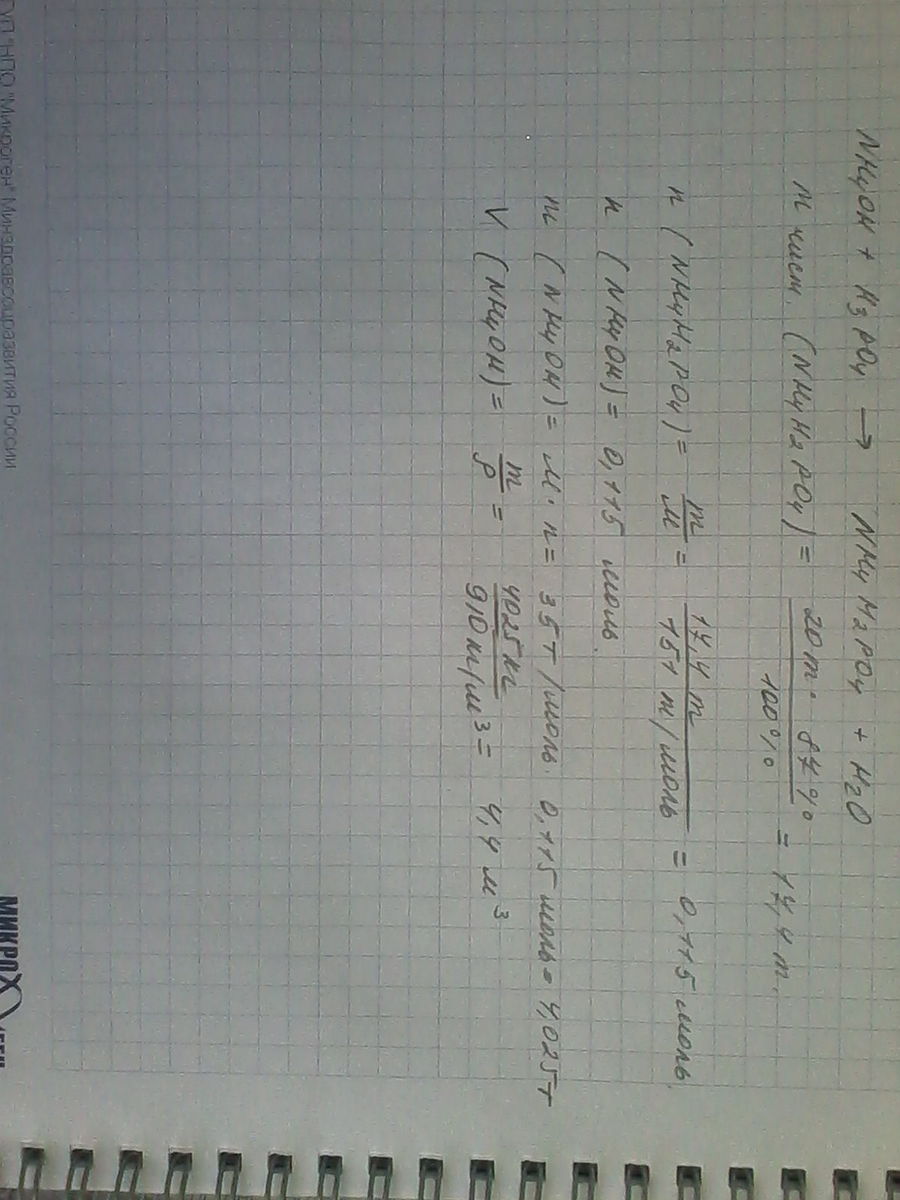 NH4OH + H3PO4 → NH4H2PO4 + H2O
m чист. (NH4H2PO4) = 20 т · 87% / 100% = 17,4 т.
n (NH4H2PO4) = m/M = 17,4 т / 151 т/моль = 0,115 моль.
n (NH4OH) = 0,115 моль.
m (NH4OH) = M · n = 35 т/моль · 0,115 моль = 4,025 т
V (NH4OH) = m/ρ = 4025 кг / 910 кг/м³ = 4,4 м³
ГУП "НПО "Микроген" Минздравсоцразвития России
МИКРО